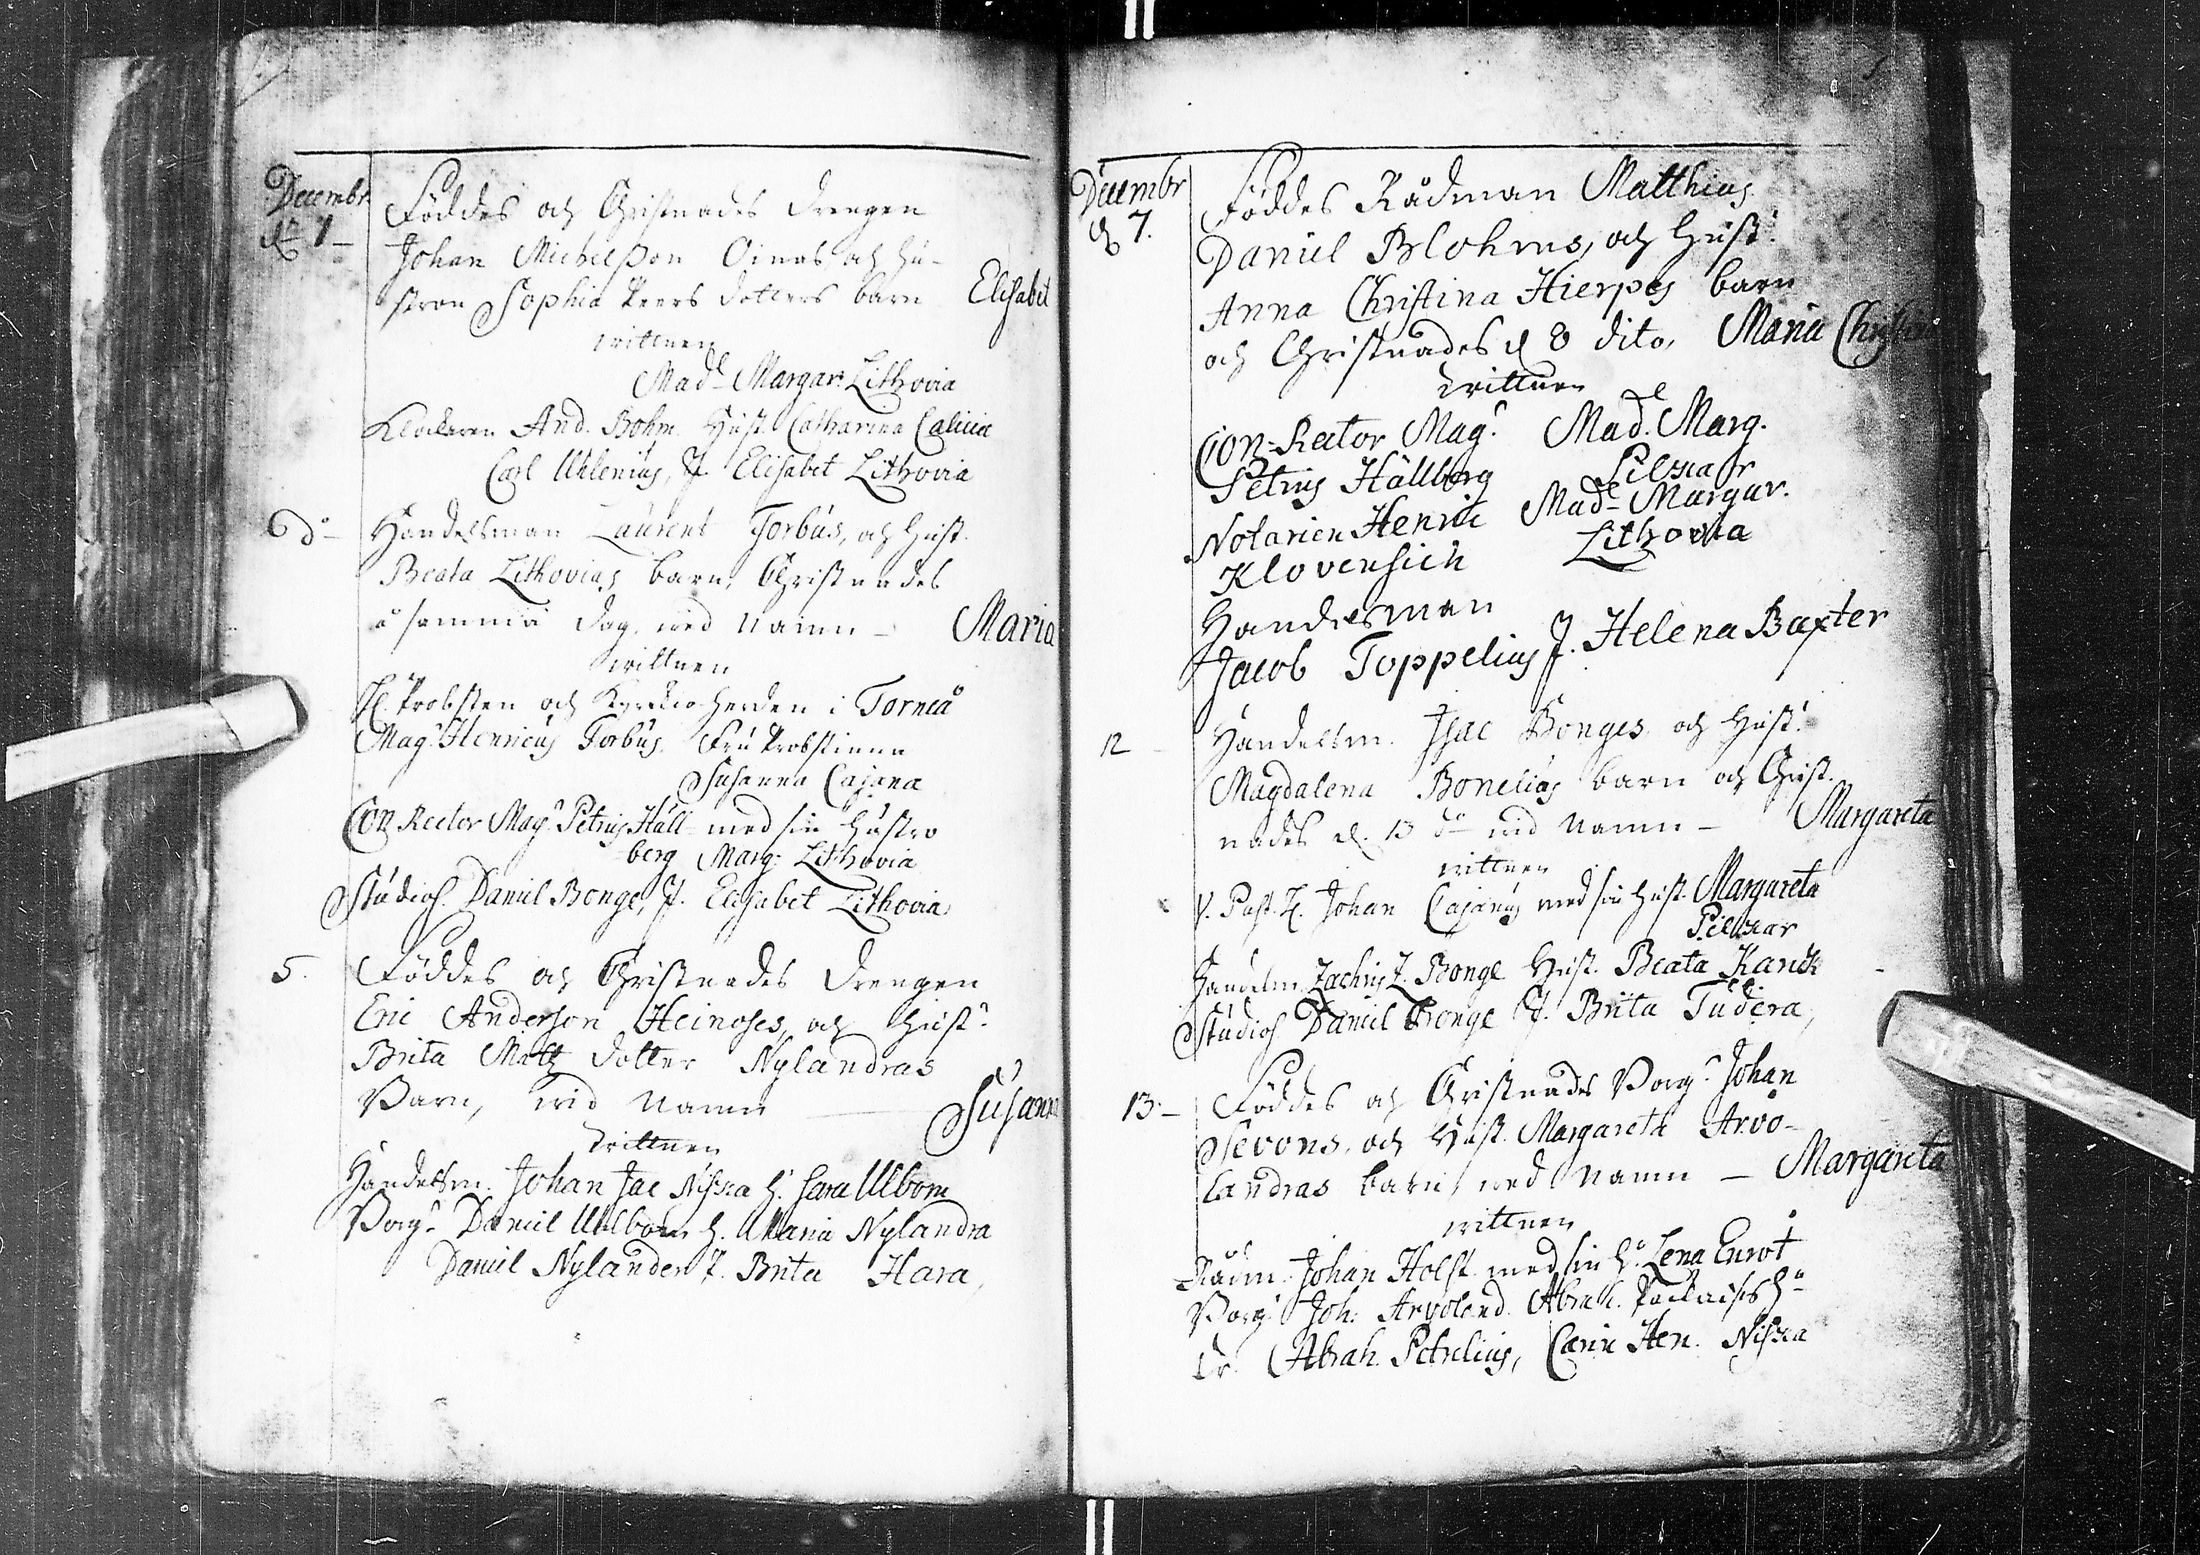 Decembr Föddes och Christnades Drengen
d 1 Johan Michelsson Oinas och Hu-
stron Sophia Peers dotters barn Elisabet
wittnen
Mad. Margar. Lithovia
Klockaren And. Bohm Hust. Catharina Calicia
Carl Uhlenius, J. Elisabet Lithovia
Do Handelsman Laurens Forbus, och Hust.
Beata Lithovias barn, Christnades
å samma dag, med namn — Maria
wittnen
H. Probsten och Kyrckioherden i Torneå
Mag. Henricus Forbus. Fru Probstinna
Susanna Cajana
Con Rector Mag. Petrus Häll- med sin Hustro
berg Marg. Lithovia
Studios. Daniel Bonge, J. Elisabet Lithovia
5. Föddes och Christnades Drengen
Eric Anderson Heinoses, och Hust.
Brita Matz dotter Nylandras
Barn, wid namn Susanna
wittnen
Handelsm. Johan Jac Niska H. Sara Ulbom
Borg. Daniel Uhlbom H. Maria Nylandra
Daniel Nylander P. Brita Hara,
Decembr Föddes Rådman Matthias
d 7. Daniel Blohms, och Hust.
Anna Christina Hierpes barn
och Christnades d 8 dito, Maria Christina
wittnen
Con-Rector Mag. Mad. Marg.
Petrus Hällberg Pilkar
Notarien Henric Mad. Margar.
Klovensich Lithovia
Handelsman
Jacob Toppelius J. Helena Baxter
12 Handelsm. Isac Bonges och Hust.
Magdalena Bonelias barn och Christ-
nades d. 13 do wid namn — Margareta
wittnen
V. Past. H. Johan Cajanus med sin Hust. Margareta
Pilkar
Handelsm. Zachris Z. Bonge Hust. Beata Karck
Studios. Daniel Bonge J. Brita Tudera,
13.— Föddes och Christnades Borg. Johan
Sevons, och Hust. Margareta Arvo-
landras barn, med namn — Margareta
wittnen
Rådm. Johan Holst med sin H. Lena Enrot
Borg. Joh. Arvoland. Abrah. H.
Dr. Abrah. Petrelius, Carin Hen. Niska